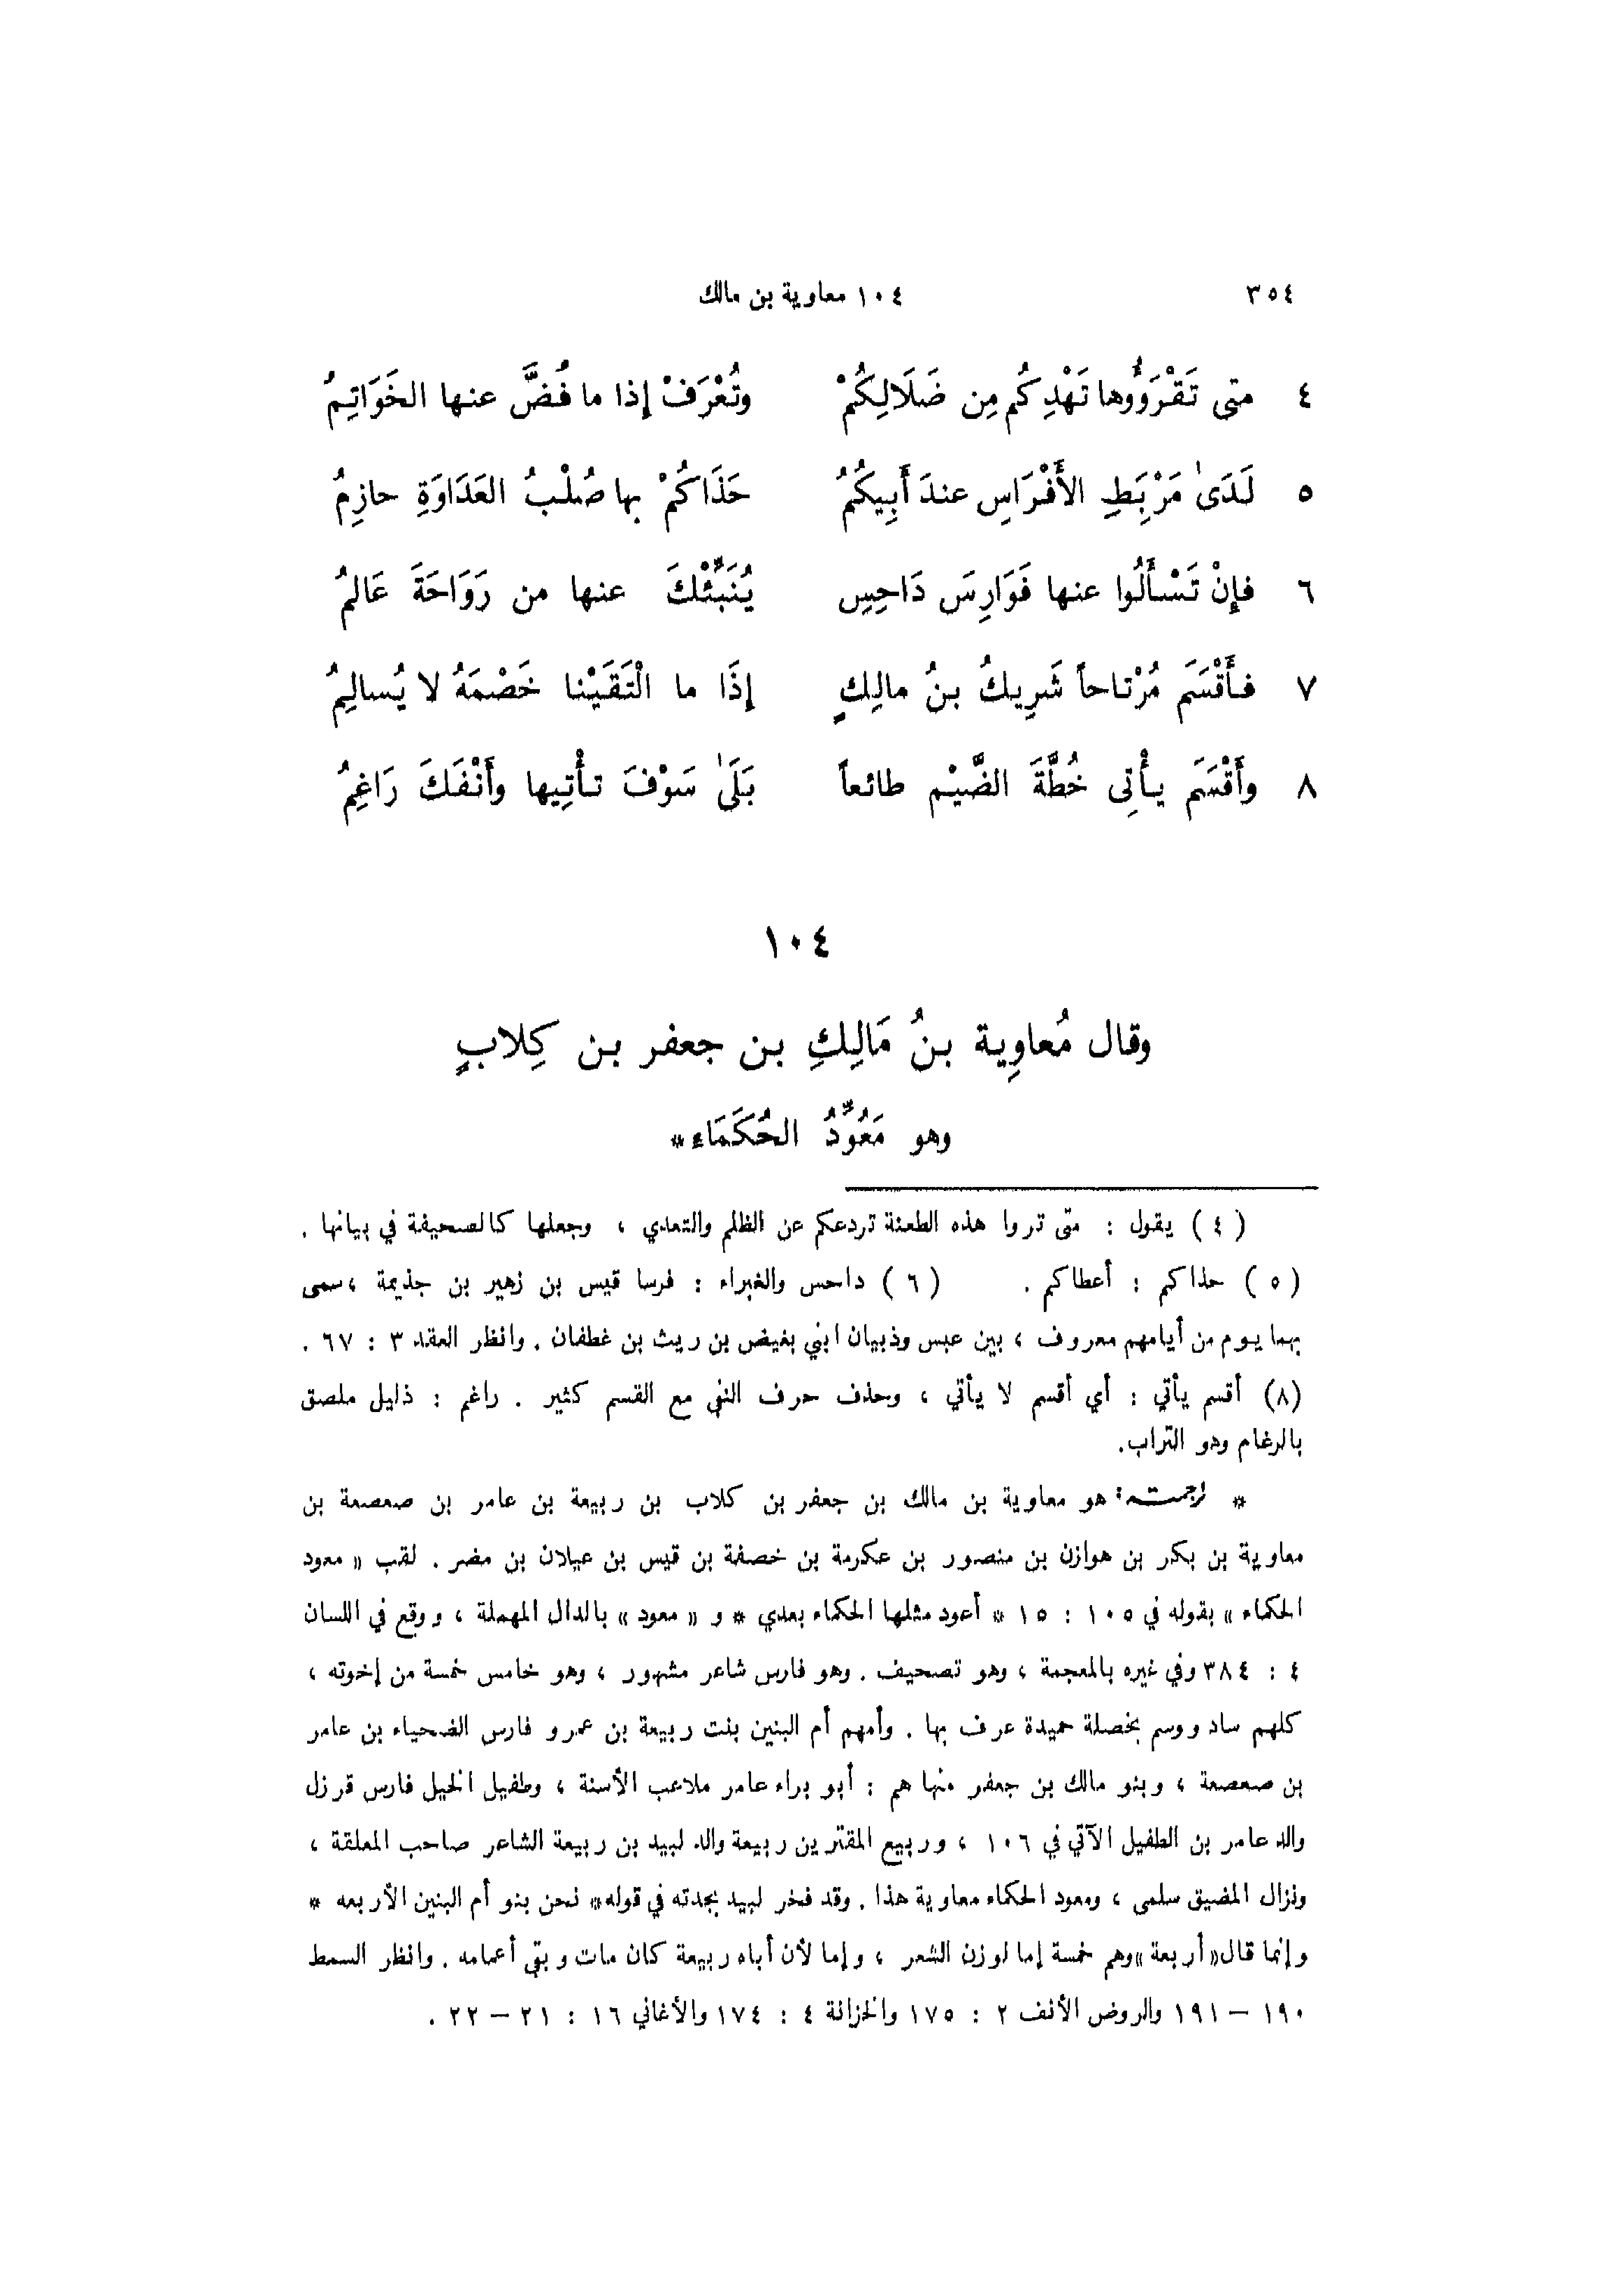 ٣٥٤ ١٠٤ معاوية بن مالك
٤ متى تَقْرَؤُوها تَهْدِكُم مِن ضَلَالِكُمْ وتُعْرَفْ إذا ما فُضَّ عنها الخَوَاتِمُ
٥ لَدَىٰ مَرْبِطِ الأَفْرَاسِ عندَ أَبِيكُمُ حَذَاكُمْ بها صُلْبُ العَدَاوَةِ حازِمُ
٦ فإِنْ تَسْأَلُوا عنها فَوَارِسَ دَاحِسٍ يُنَبِّئْكَ عنها من رَوَاحَةَ عَالمُ
٧ فأَقْسَمَ مُرْتاحاً شَرِيكُ بنُ مالِكٍ إذَا ما الْتَقَيْنا خَصْمَهُ لا يُسالِمُ
٨ وأَقْسَمَ يأْتِى خُطَّةَ الضَّيْمِ طائعاً بَلَىٰ سَوْفَ تأْتِيها وأَنْفُكَ رَاغِمُ
١٠٤
وقال مُعاوِية بنُ مَالِكِ بن جعفر بن كِلابٍ
وهو مَعُوِّدُ الحُكَمَاءِ*
(٤) يقول : متى تروا هذه الطعنة تردعكم عن الظلم والتعدي ، وجعلها كالصحيفة في بيانها .
(٥) حذاكم : أعطاكم . (٦) داحس والغبراء : فرسا قيس بن زهير بن جذيمة ، سمى
بهما يوم من أيامهم معروف ، بين عبس وذبيان ابني بغيض بن ريث بن غطفان . وانظر العقد ٣ : ٦٧ .
(٨) أقسم يأتي : أي أقسم لا يأتي ، وحذف حرف النفي مع القسم كثير . راغم : ذليل ملصق
بالرغام وهو التراب.
* ترجمته: هو معاوية بن مالك بن جعفر بن كلاب بن ربيعة بن عامر بن صعصعة بن
معاوية بن بكر بن هوازن بن منصور بن عكرمة بن خصفة بن قيس بن عيلان بن مضر . لقب « معود
الحكماء » بقوله في ١٠٥ : ١٥ * أعود مثلها الحكماء بعدي * و « معود » بالدال المهملة ، ووقع في اللسان
٤ : ٣٨٤ وفي غيره بالمعجمة ، وهو تصحيف . وهو فارس شاعر مشهور ، وهو خامس خمسة من إخوته ،
كلهم ساد ووسم بخصلة حميدة عرف بها . وأمهم أم البنين بنت ربيعة بن عمرو فارس الضحياء بن عامر
بن صعصعة ، وبنو مالك بن جعفر منها هم : أبو براء عامر ملاعب الأسنة ، وطفيل الخيل فارس قرزل
والد عامر بن الطفيل الآتي في ١٠٦ ، وربيع المقترين ربيعة والد لبيد بن ربيعة الشاعر صاحب المعلقة ،
ونزال المضيق سلمى ، ومعود الحكماء معاوية هذا . وقد فخر لبيد بجدته في قوله* نحن بنو أم البنين الأربعه *
وإنما قال« أربعة »وهم خمسة إما لوزن الشعر ، وإما لأن أباه ربيعة كان مات وبقي أعمامه . وانظر السمط
١٩٠ – ١٩١ والروض الأنف ٢ : ١٧٥ والخزانة ٤ : ١٧٤ والأغاني ١٦ : ٢١ – ٢٢ .